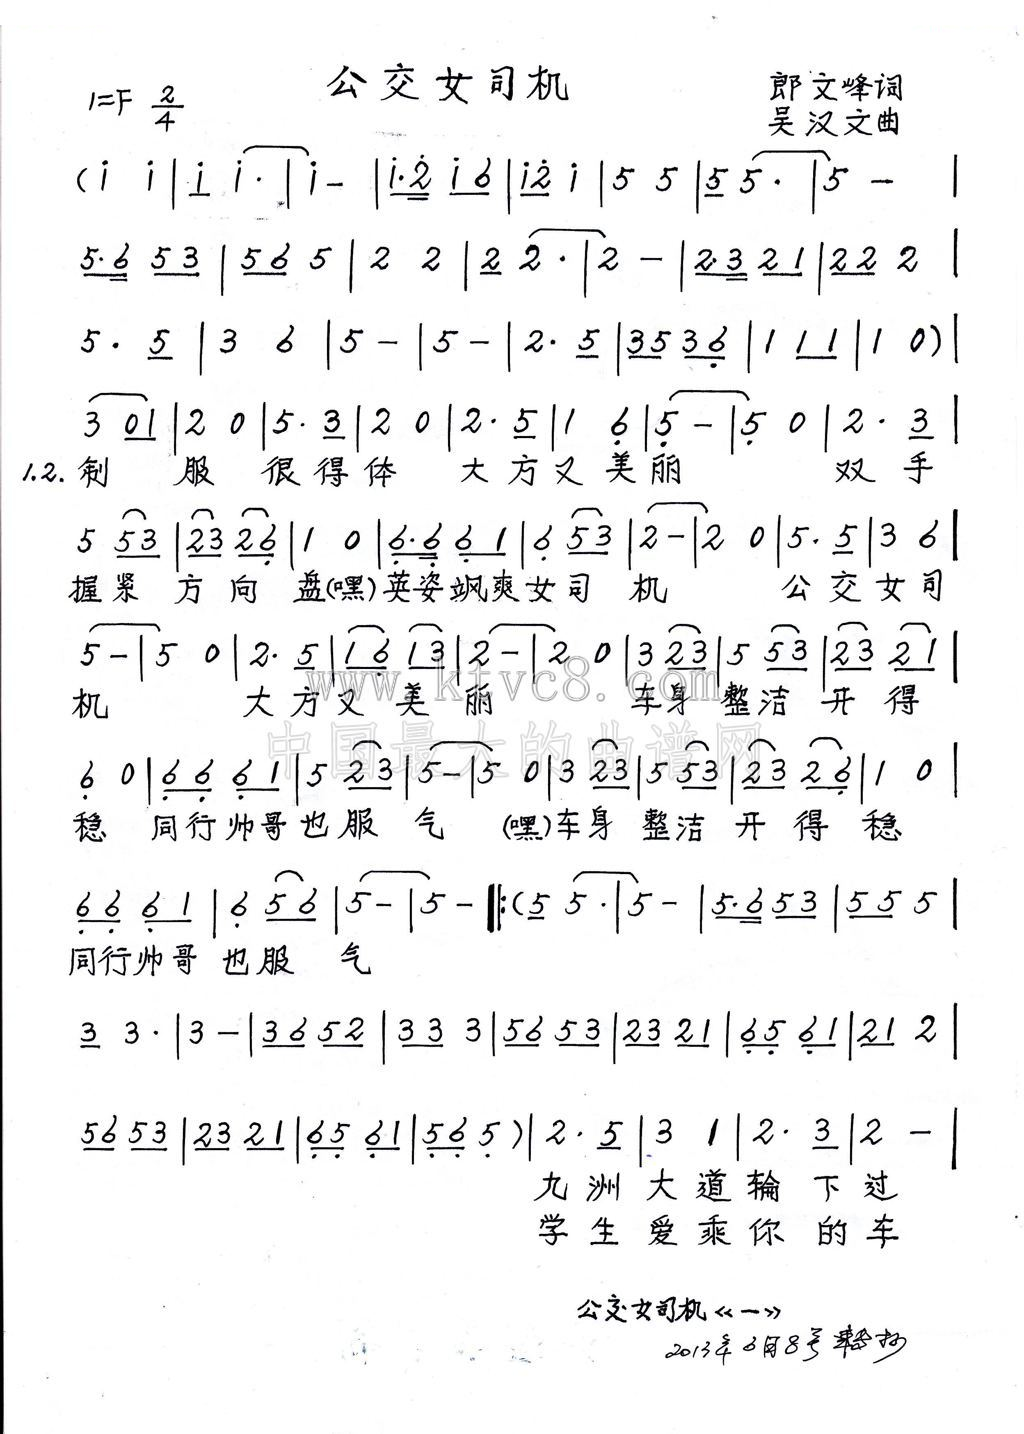 公交女司机
1=F 2/4
郎文峰词
吴汉文曲
(i i | i i· | i - | i·2 i6 | i2 i | 5 5 | 5 5· | 5 - |
5·6 53 | 56 5 | 2 2 | 2 2· | 2 - | 2·3 21 | 22 2 |
5· 5 | 3 6 | 5 - | 5 - | 2· 5 | 35 36 | 1 11 | 1 0) |
3 01 | 2 0 | 5· 3 | 2 0 | 2· 5 | 1 6 | 5 - | 5 0 | 2· 3 |
1.2. 制 服 很得体 大方又美丽 双手
5 53 | 23 26 | 1 0 | 6·6 61 | 6 53 | 2 - | 2 0 | 5· 5 | 3 6 |
握紧 方向 盘(嘿)英姿飒爽女司 机 公交女司
5 - | 5 0 | 2· 5 | 16 13 | 2 - | 2 0 | 3 23 | 5 53 | 23 21 |
机 大方又美丽 车身 整洁 开得
6 0 | 66 61 | 5 23 | 5 - | 5 0 | 3 23 | 5 53 | 23 26 | 1 0
稳 同行帅哥也服气 (嘿)车身 整洁 开得 稳
66 61 | 6 56 | 5 - | 5 - ‖: (5 5· | 5 - | 5·6 53 | 55 5 |
同行帅哥 也服 气
3 3· | 3 - | 36 52 | 33 3 | 56 53 | 23 21 | 65 61 | 21 2 |
56 53 | 23 21 | 65 61 | 56 5 ) | 2· 5 | 3 1 | 2· 3 | 2 - |
九洲大道轮下过
学生爱乘你的车
公交女司机《一》
2013年6月8号
www.ktvc8.com
中国最大的曲谱网